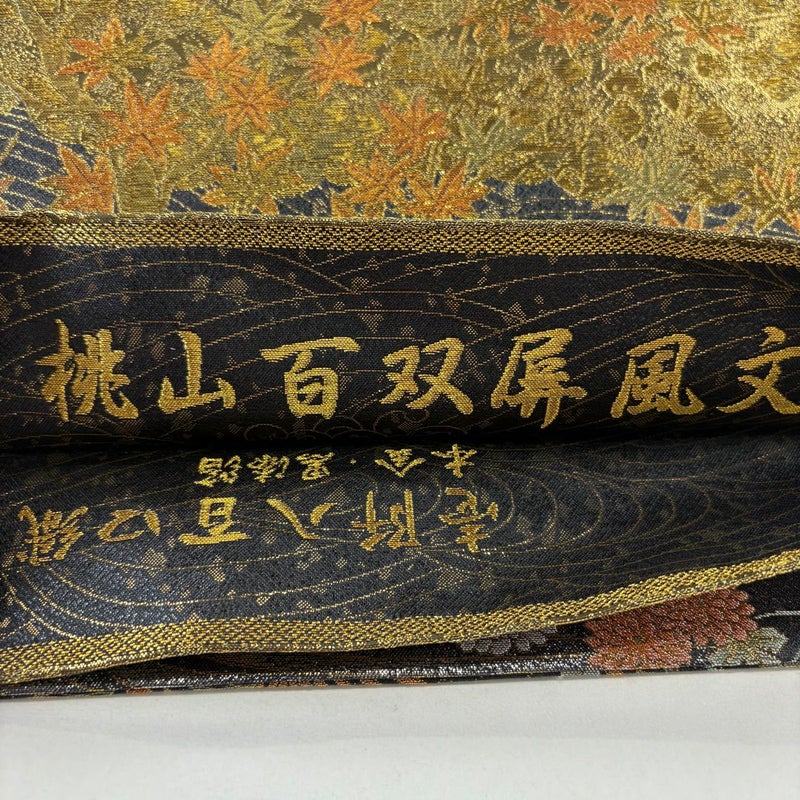 桃山百双屏風文
壱阡八百口織
本金・黒漆箔